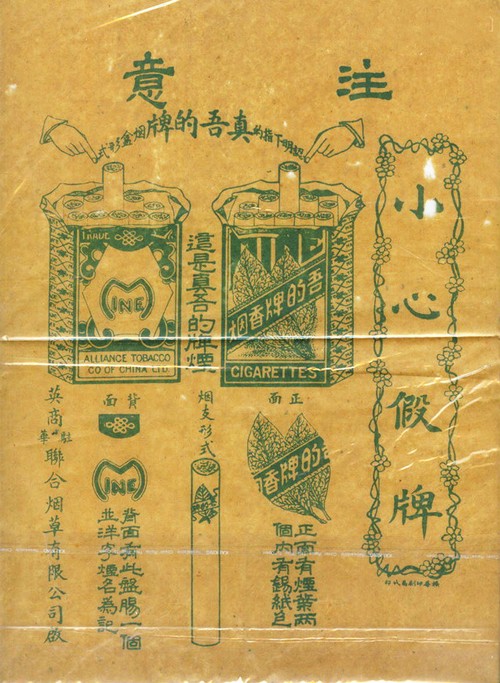 注意
認明下指的真吾的牌烟盒形式
小心假牌
這是真吾的牌煙
TRADE
MINE
ALLIANCE TOBACCO
CO OF CHINA LTD.
吾的牌香烟
CIGARETTES
正面
吾的牌香烟
正面有煙葉兩
個內有錫紙包
烟支形式
背面
MINE
背面有此盤腸一個
並洋字煙名為記
英商駐華聯合烟草有限公司啟